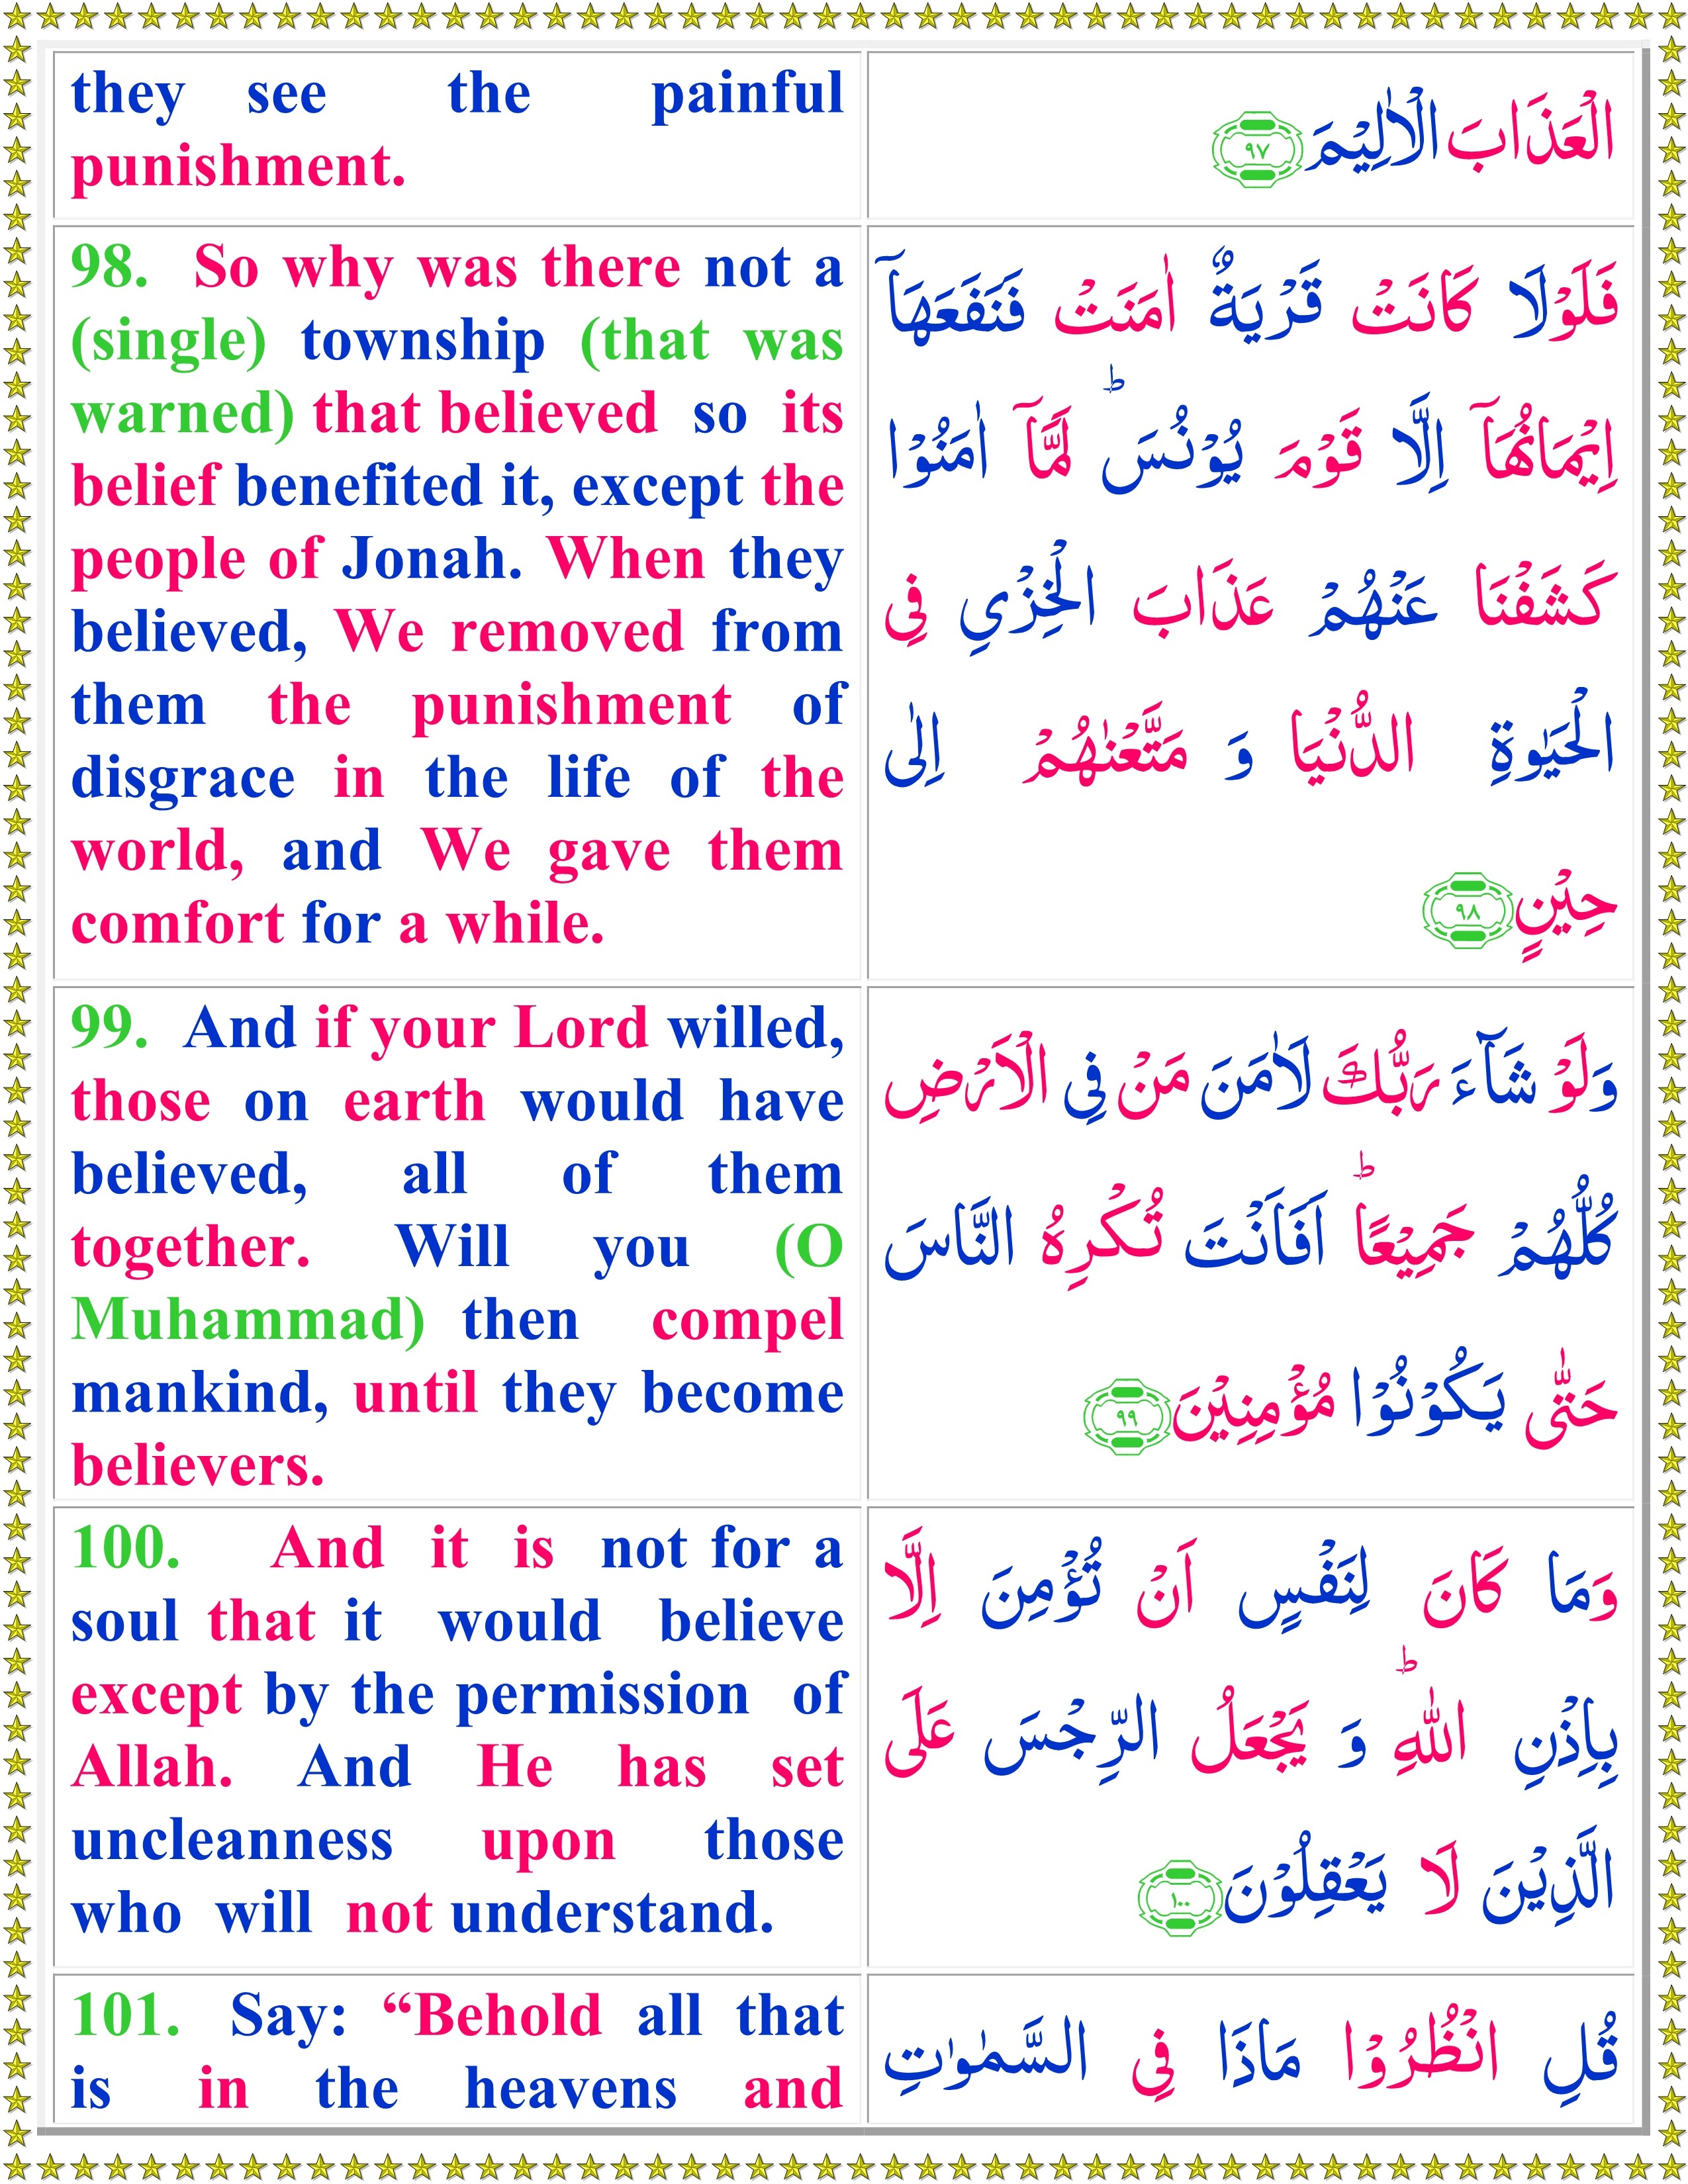 they see the painful
punishment.
الْعَذَابَ الْاَلِیْمَ ﴿۹۷﴾
98. So why was there not a
(single) township (that was
warned) that believed so its
belief benefited it, except the
people of Jonah. When they
believed, We removed from
them the punishment of
disgrace in the life of the
world, and We gave them
comfort for a while.
فَلَوْلَا كَانَتْ قَرْیَةٌ اٰمَنَتْ فَنَفَعَهَاۤ
اِیْمَانُهَاۤ اِلَّا قَوْمَ یُوْنُسَ ؕ لَمَّاۤ اٰمَنُوْا
كَشَفْنَا عَنْهُمْ عَذَابَ الْخِزْیِ فِی
الْحَیٰوةِ الدُّنْیَا وَ مَتَّعْنٰهُمْ اِلٰی
حِیْنٍ ﴿۹۸﴾
99. And if your Lord willed,
those on earth would have
believed, all of them
together. Will you (O
Muhammad) then compel
mankind, until they become
believers.
وَلَوْ شَآءَ رَبُّكَ لَاٰمَنَ مَنْ فِی الْاَرْضِ
كُلُّهُمْ جَمِیْعًا ؕ اَفَاَنْتَ تُكْرِهُ النَّاسَ
حَتّٰی یَكُوْنُوْا مُؤْمِنِیْنَ ﴿۹۹﴾
100. And it is not for a
soul that it would believe
except by the permission of
Allah. And He has set
uncleanness upon those
who will not understand.
وَمَا كَانَ لِنَفْسٍ اَنْ تُؤْمِنَ اِلَّا
بِاِذْنِ اللّٰهِ ؕ وَ یَجْعَلُ الرِّجْسَ عَلَی
الَّذِیْنَ لَا یَعْقِلُوْنَ ﴿۱۰۰﴾
101. Say: “Behold all that
is in the heavens and
قُلِ انْظُرُوْا مَاذَا فِی السَّمٰوٰتِ